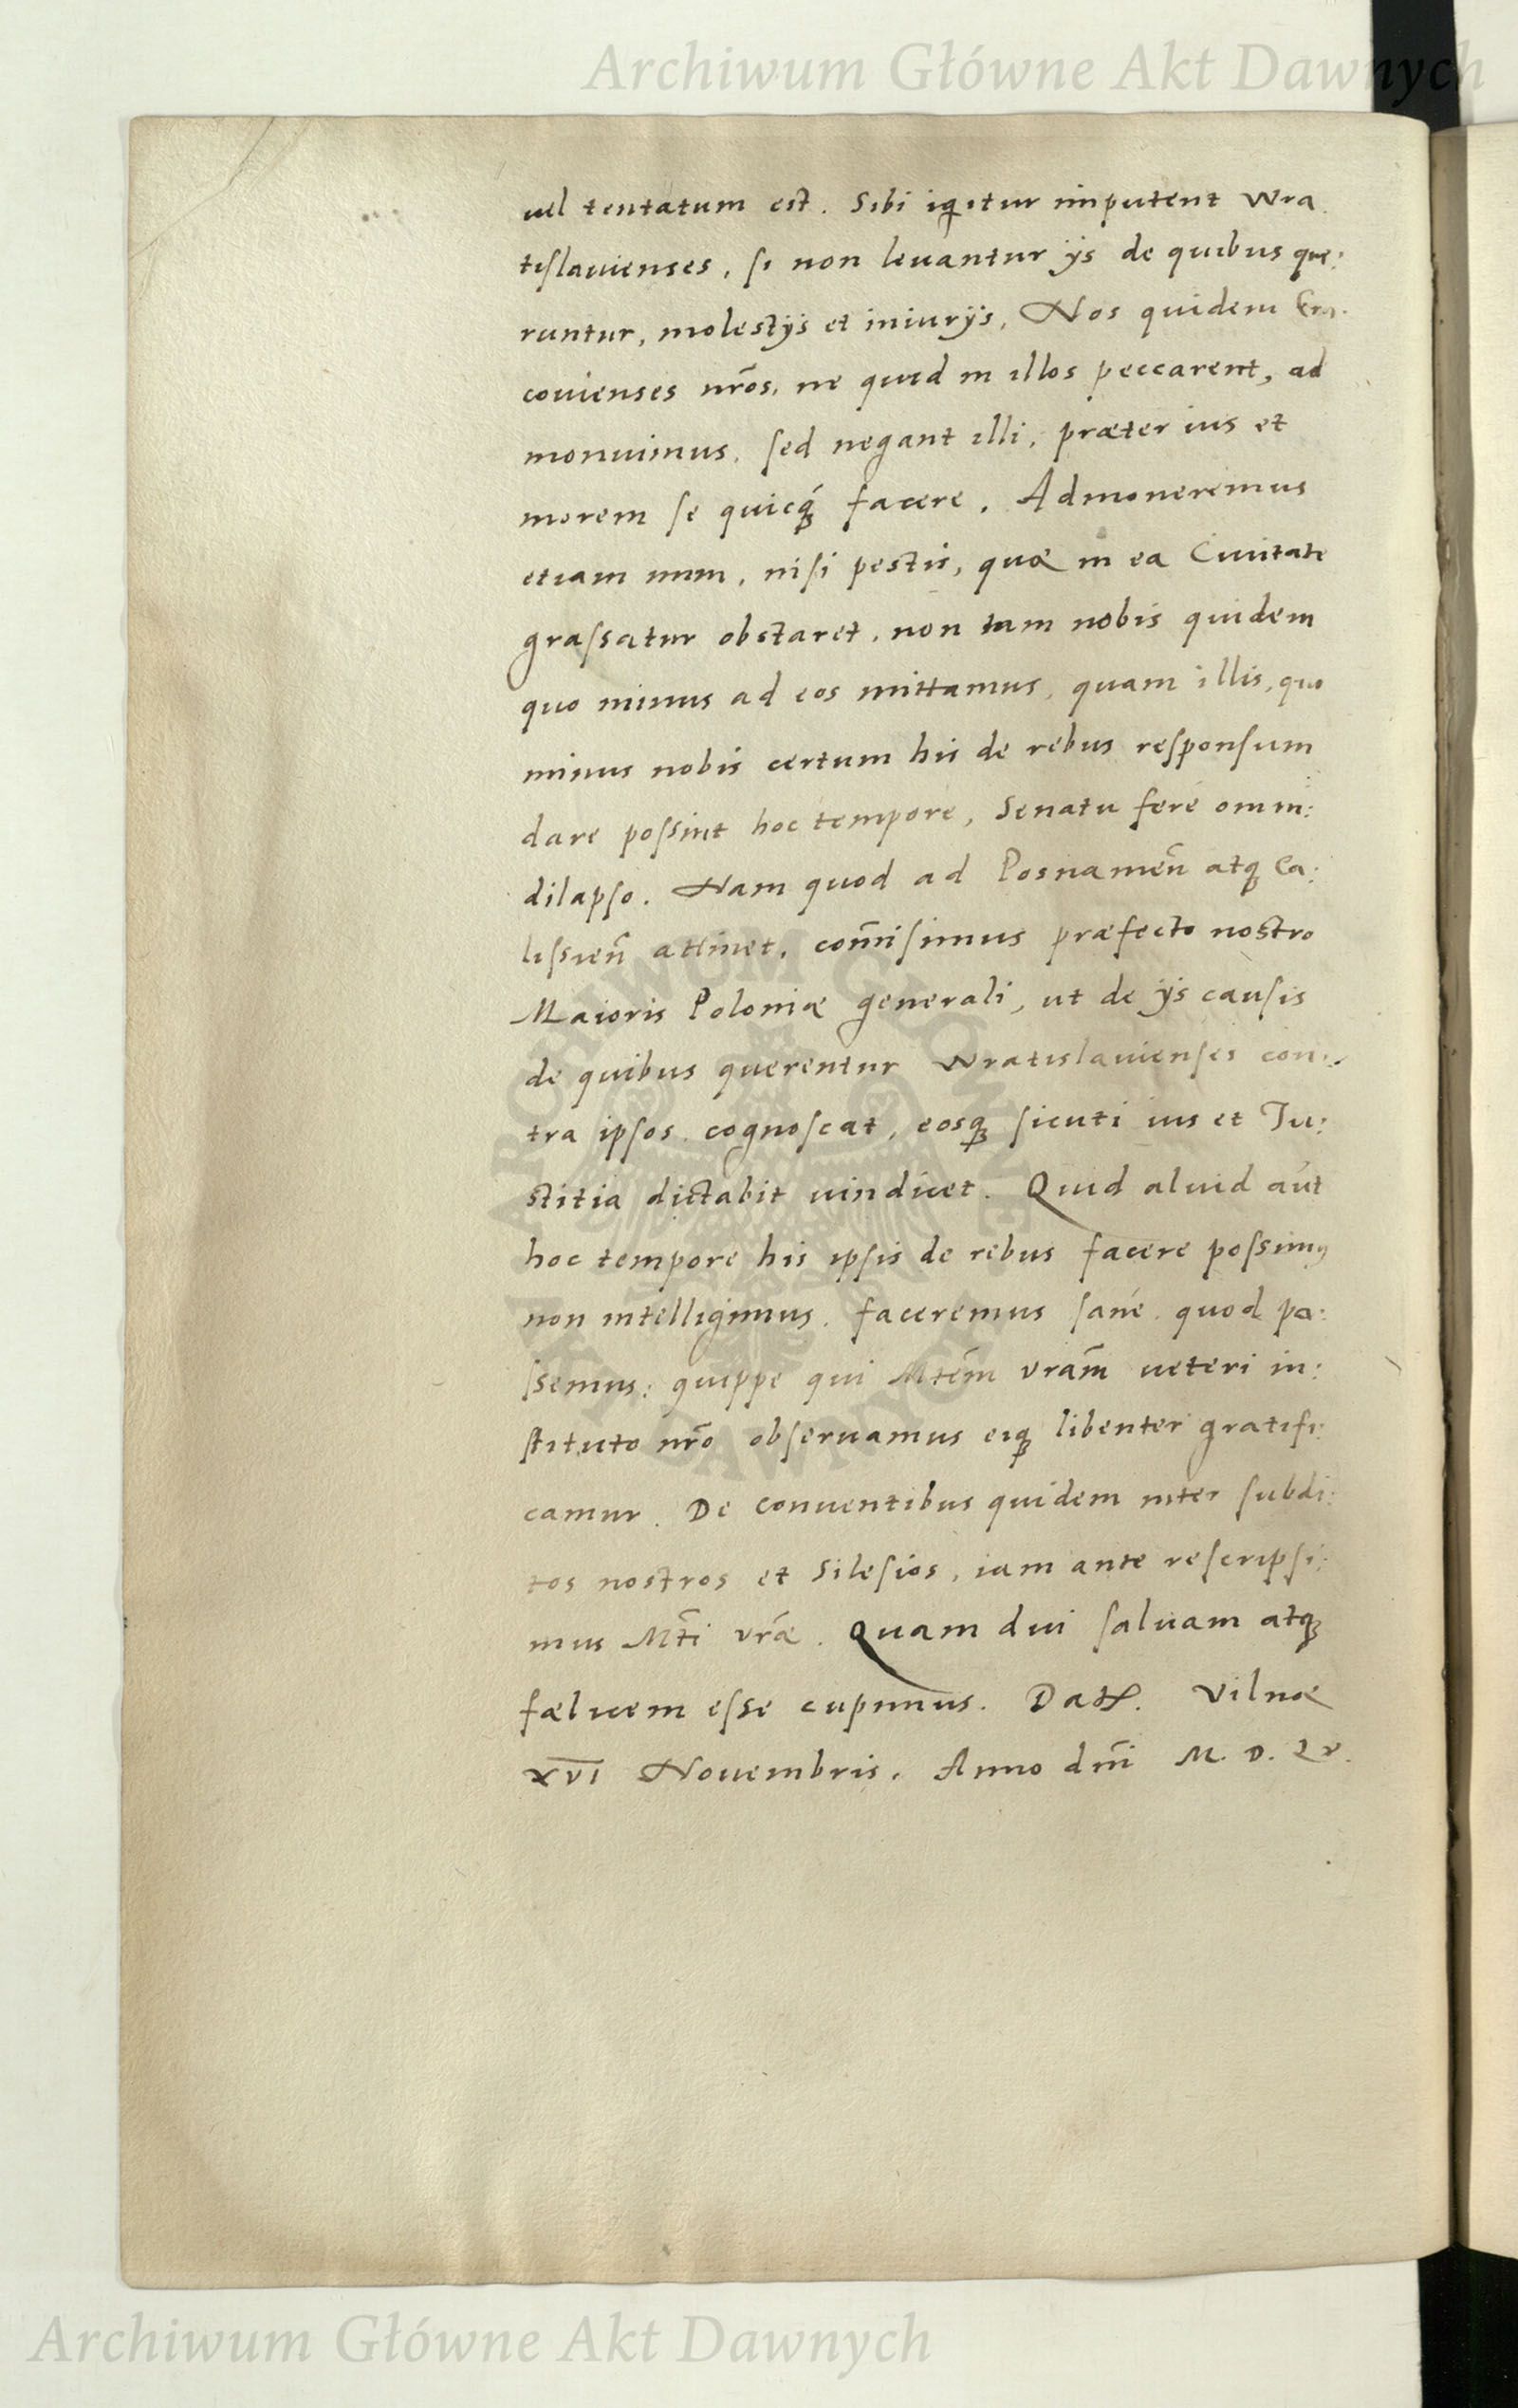 Archiwum Główne Akt Dawnych
uel tentatum est. Sibi igitur imputent Wra
tislauienses, si non leuantur ijs de quibus que:
runtur, molestijs et iniurijs, Nos quidem Cra
couienses nr̃os, ne quid in illos peccarent, ad
monuimus, sed negant illi, præter ius et
morem se quicq́ꝫ facere. Admoneremus
etiam num, nisi pestis, quæ in ea Ciuitate
grassatur obstaret, non tam nobis quidem
quo minus ad eos mittamus, quam illis, quo
minus nobis certum his de rebus responsum
dare possint hoc tempore, Senatu feré omni:
dilapso. Nam quod ad Posnamen̄ atqꝫ Ca:
lissien̄ attinet, com̃isimus præfecto nostro
Maioris Poloniæ generali, ut de ijs causis
de quibus querentur Wratislauienses con:
tra ipsos cognoscat, eosqꝫ sicuti ius et Ju:
stitia dictabit uindicet. Quid aliud aũt
hoc tempore his ipsis de rebus facere possimus
non intelligimus. faceremus sané quod po:
ssemus: quippe qui Mtẽm vrãm ueteri in:
stituto nr̃o obseruamus eiqꝫ libenter gratifi:
camur. De conuentibus quidem inter subdi:
tos nostros et Silesios, iam ante rescripsi:
mus Mt̃i vræ̃. Quam diu saluam atqꝫ
fælicem esse cupimus. Dat. Vilnæ
XVI Nouembris. Anno dñi M. D. Lv.
ARCHIWUM GŁÓWNE
AKT DAWNYCH
Archiwum Główne Akt Dawnych